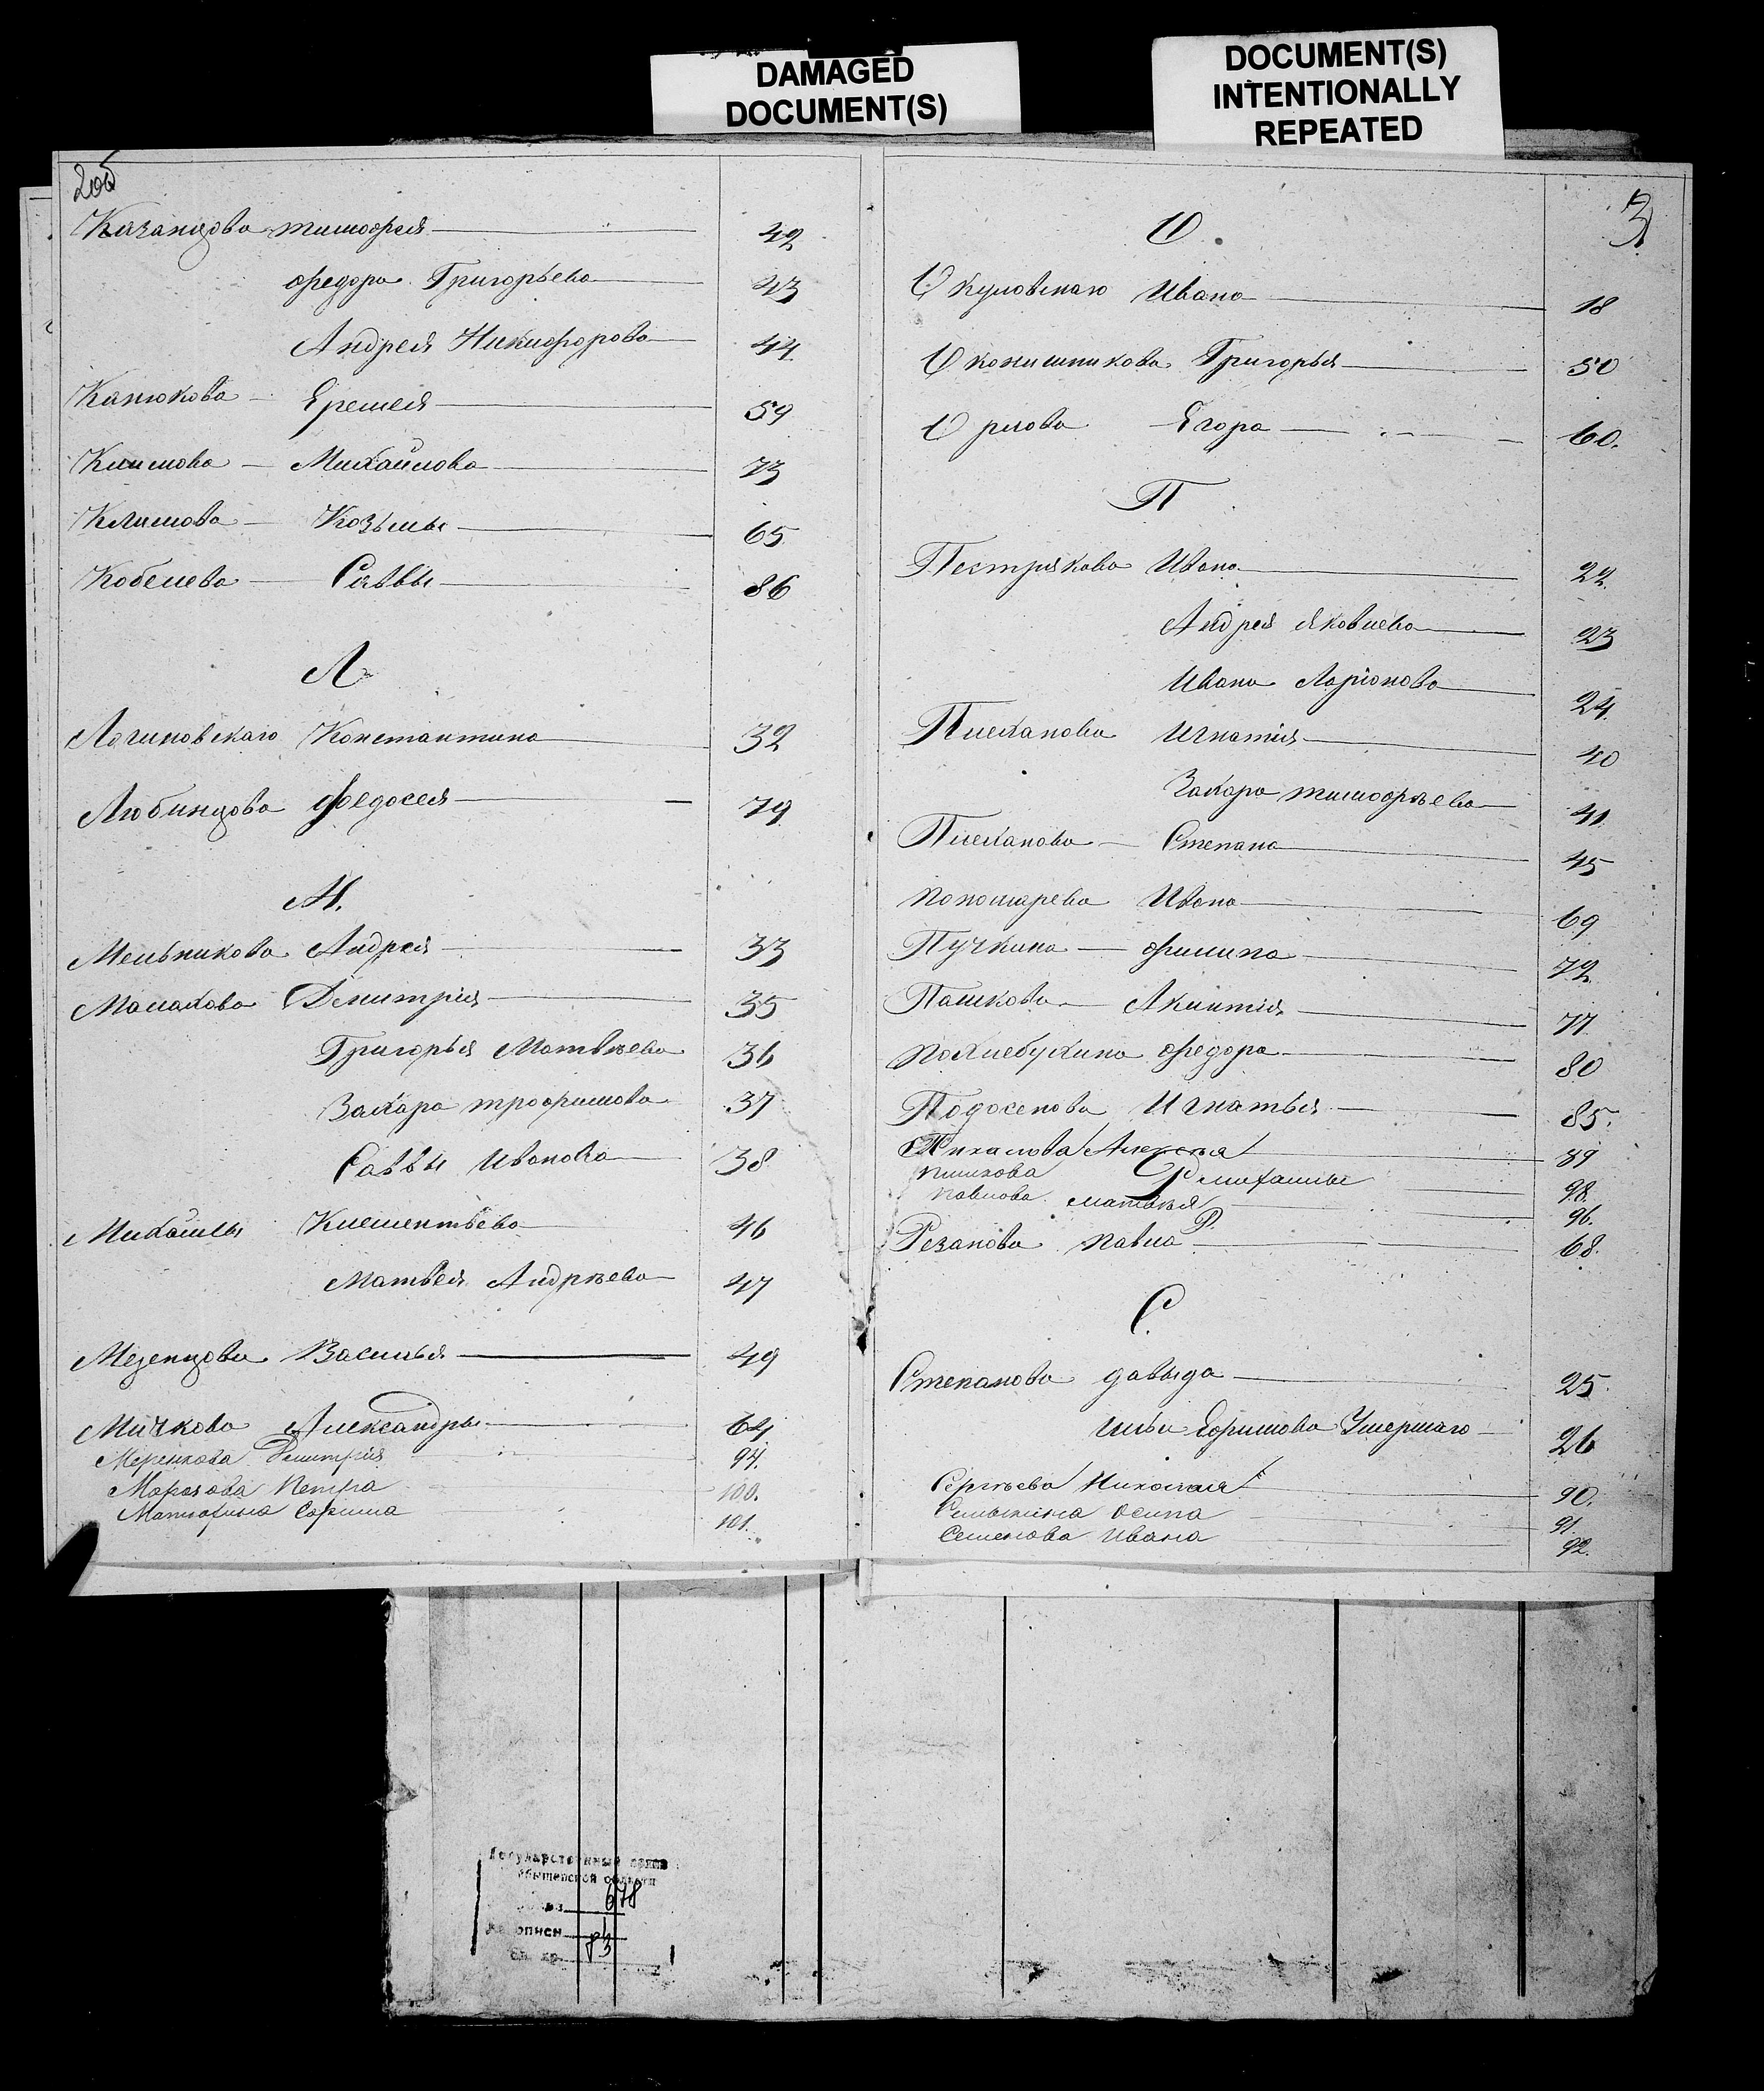 DAMAGED
DOCUMENT(S)
DOCUMENT(S)
INTENTIONALLY
REPEATED
2об
Казанцова тимофея 42
федора Григорьева 43
Андрея Никифорова 44
Канюкова Еремея 59
Климова Михайлова 73
Климова Козьмы 65
Кобелева Саввы 86
Л
Логиновскаго Константина 32
Любинцова Федосея 79
М.
Мельникова Андрея 33
Малахова Дмитрія 35
Григорья Матвѣева 36
Захара трофимова 37
Саввы Иванова 38
Михайлы Клементьева 46
Матвея Андрѣева 47
Мезенцова Василья 49
Мичкова Александры 64
Меренкова Дмитрія 94.
Морозова Петра 100.
Софина 101.
3
О.
Окуловскаго Ивана 18
Оконишникова Григорья 50
Орлова Егора 60.
П
Пестрякова Ивана 22.
Андрея Яковлева 23
Ивана Ларіонова 24.
Плеханова Игнатія 40
Захара тимофѣева 41
Плеханова Степана 45
пономарева Ивана 69
Пучкина филипа 72.
Пашкова Акинтія 77
похлебухина федора 80
Подосенова Игнатья 85.
Алексѣя 89
98.
павлова матвѣя 96.
Р.
Резанова павла 68.
С
Степанова давыда 25.
Ильи Ефимова Умершаго 26
Сергѣева Николая 90.
осипа 91.
Семенова Ивана 92.
Государственный архив
области
678
описи 83
Ед. хр.